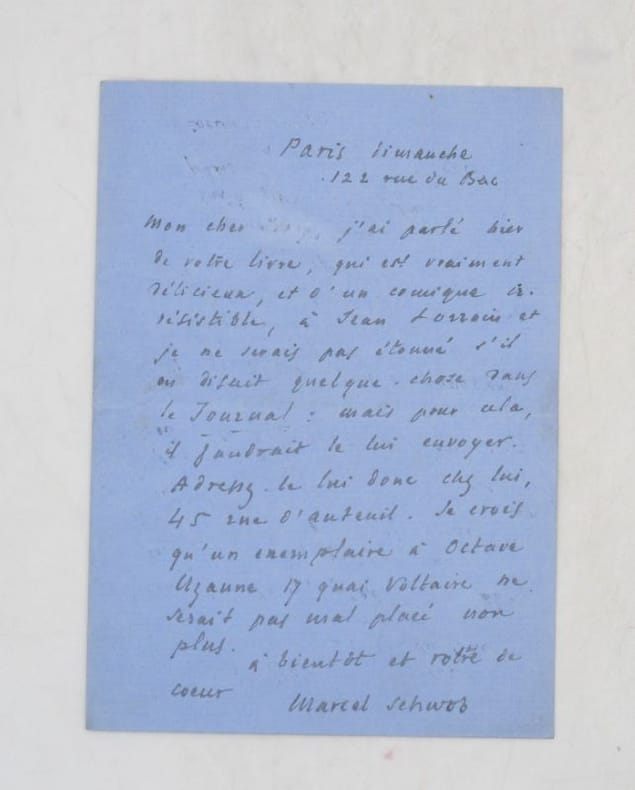 Paris dimanche
122 rue du Bac
Mon cher j'ai parlé hier
de votre livre, qui est vraiment
délicieux, et d'un comique ir-
résistible, à Jean Lorrain et
je ne serais pas étonné s'il
en disait quelque-chose dans
le Journal : mais pour cela,
il faudrait le lui envoyer.
Adressez-le lui donc chez lui,
45 rue d'auteuil. Je crois
qu'un exemplaire à Octave
Uzanne 17 quai Voltaire ne
serait pas mal placé non
plus.
à bientôt et votre de
coeur
Marcel Schwob